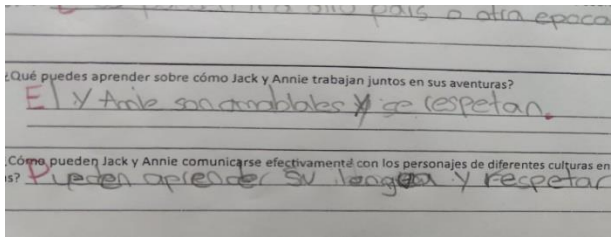 otro pais o otra epoca
¿Qué puedes aprender sobre cómo Jack y Annie trabajan juntos en sus aventuras?
El y Annie son amablabes y se respetan.
¿Cómo pueden Jack y Annie comunicarse efectivamente con los personajes de diferentes culturas en
as?
Pueden aprender su lengua y respetar